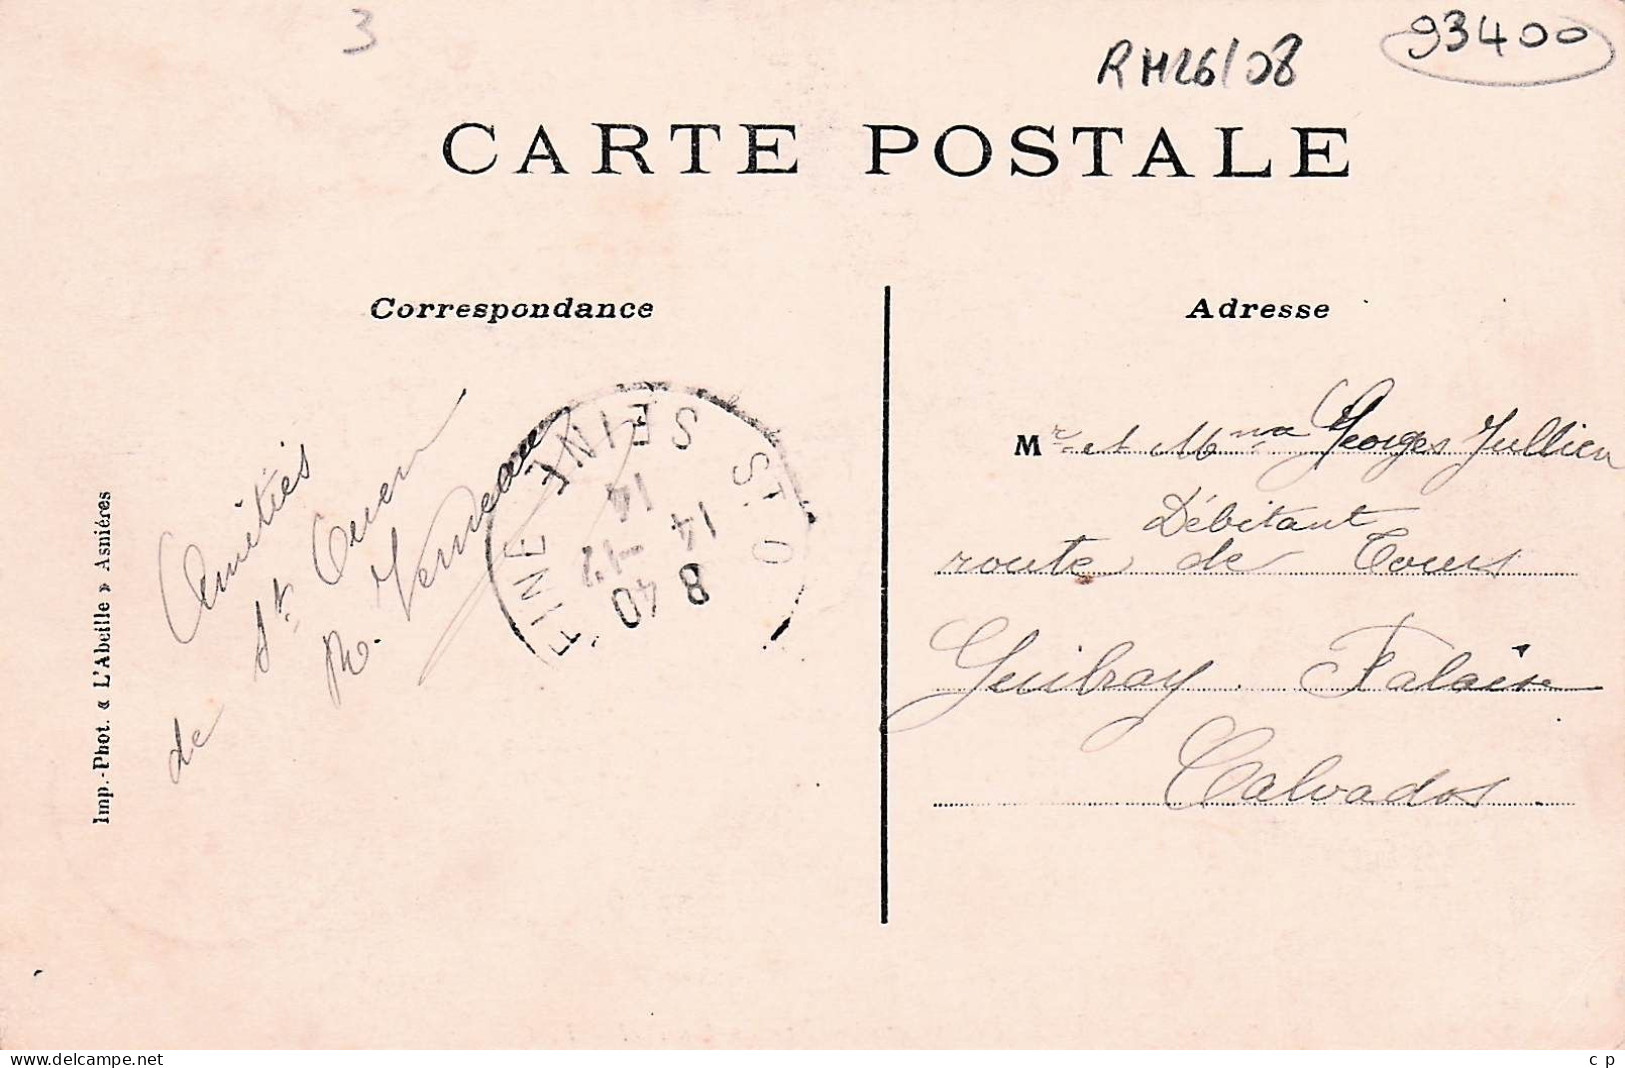 3
RH26/08
93400
CARTE POSTALE
Correspondance
Adresse
Amitiés
de St Ouen
M. Verneau
SEINE
ST O
14 14
14 -12
8 40
Mr et Mme Georges Jullien
Débitant
route de Caen
Guibray. Falaise
Calvados.
Imp.-Phot. « L'Abeille » Asnières
www.delcampe.net
c p